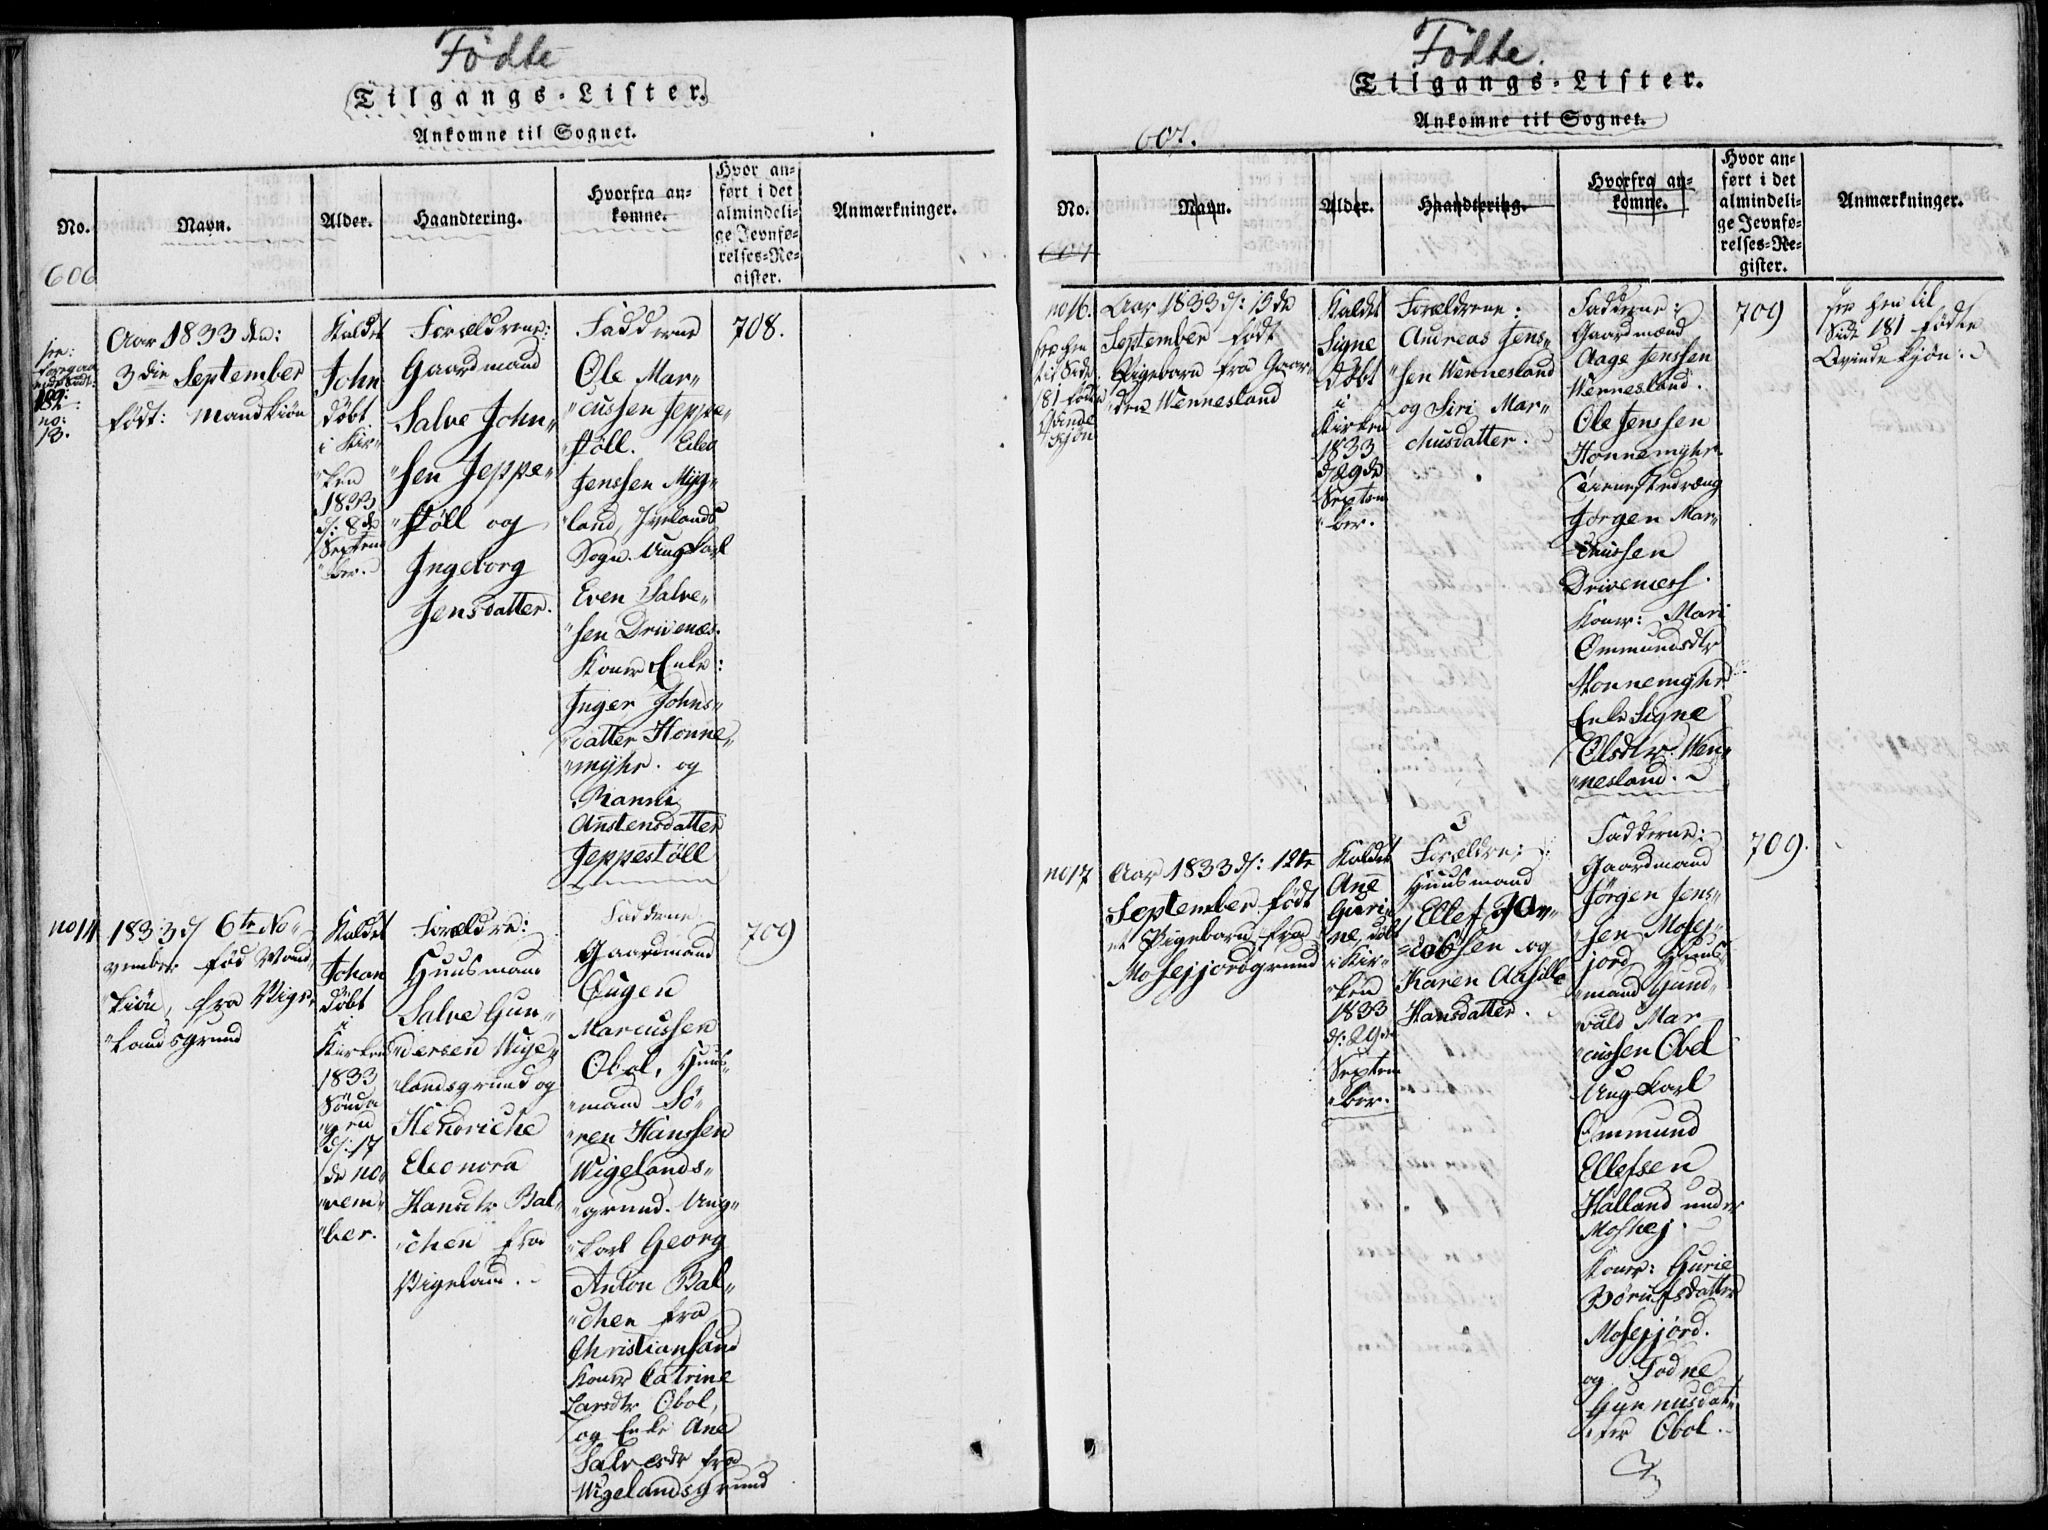 Födte
Tilgangs-Lister.
Ankomne til Sognet.
No.
Navn.
Alder.
Haandtering.
Hvorfra an-
komne.
Hvor an-
ført i det
almindeli-
ge Jevnfø-
relses-Re-
gister.
Anmærkninger.
606
no:
13.
Aar 1833 den:
3die September
født: Mandkiön
Kaldet
John
döbt
i Kir-
"ken
1833
d: 8de
Septem
"ber.
Forældrene:
Gaardmand
Salve John-
"sen Jeppe-
"stöll og
Ingeborg
Jensdatter.
Fadderne
Ole Mar-
"cussen Jeppe-
"stöll. Eilev
Jenssen Myg-
land, Ivelands
Sogn. Ungkarl
Even Salve-
"sen Drivenæs.
Koner Enke:
Inger Johns-
"datter Honne-
"myhr. og
Ranni
Anstensdatter
Jeppestöll
708.
no14
1833 d 6te No-
vember fød Mand-
"kiön, fra Vige-
"landsgrund
Kaldet
Johan
döbt
i
Kirken
1833
Sönda
"gen
d: 17
de no-
"vem-
"ber.
Forældre:
Huusmand
Salve Gun-
"dersen Vige-
"landsgrund og
Hendriche
Eleonora
Hansdtr Bal-
"chen fra
Vigeland.
Fadderne
Gaardmand
Eugen
Marcussen
Obol, Huus-
"mand Sö-
"ren Hanssen
Wigelands-
"grund. Ung-
"karl Georg
Anton Bal-
"chen fra
Christiansand
Koner Catrine
Larsdtr Obol,
og Enke Ane
Salvesdr fra
Wigelandsgrund
709
Födte.
Tilgangs-Lister.
Ankomne til Sognet.
607.
No.
Navn.
Alder.
Haandtering.
Hvorfra an-
komne.
Hvor an-
ført i det
almindeli-
ge Jevnfø-
relses-Re-
gister.
Anmærkninger.
607
no16.
see hen
til Side
181 födte
Qvinde
Kjön
Aar 1833 d: 13de
September født
Pigebarn fra Gaar-
"den Wennesland
Kaldet
Signe
döbt
i
Kirken
1833
d 29de
Septem
"ber.
Forældrene:
Andreas Jens-
"sen Wennesland
og Siri Mar-
chusdatter.
Fadderne:
Gaardmænd
Aage Jenssen
Wennesland.
Ole Jenssen
Honnemyhr.
Tienestedræng
Jörgen Mar-
"cussen
Drivenæs.
Koner: Mari
Ommundsdtr
Honnemyhr
Enke Signe
Olsdtr. Wen-
"nesland.
709
see hen til
Side 181 födte
Qvinde kjön.
no17
Aar 1833 d: 12te
September født
et Pigebarn fra
Mosejjordgrund
Kaldet
Ane
Guri-
ne, döbt
i Kir-
"ken
1833
d: 29de
Septem
"ber.
Forældre:
Huusmand
Ellef Ja-
"cobsen og
Karen Aasille
Hansdatter.
Fadderne:
Gaardmand
Jörgen Jens-
"sen Mosej-
jord Huus-
"mand Gund-
"vald Mar-
"cussen Obel
Ungkarl
Ommund
Ellefsen
Halland under
Moshej.
Koner: Gurie
Börufsdatter
Mosejjord.
og Todne
Gunnusdat-
"ter Obol.
709.